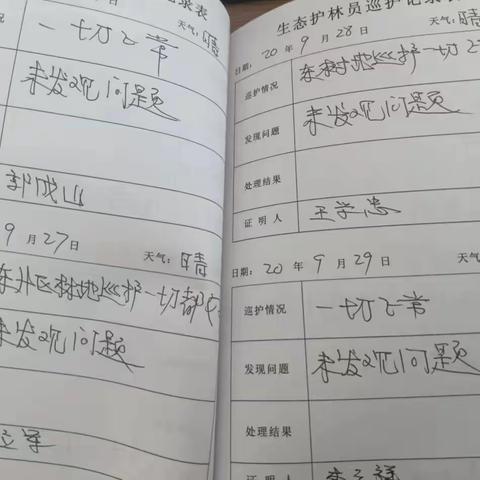 录表
天气:晴
一切正常
未发现问题
郭成山
9月27日 天气:晴
东外区林地巡护一切都正
未发现问题
生态护林员巡护记录表
日期:20 年 9 月 28 日 天气:晴
巡护情况 东林地巡护一切正
发现问题 未发现问题
处理结果
证明人 王学忠
日期:20 年 9 月 29 日 天气:
巡护情况 一切正常
发现问题 未发现问题
处理结果
证明人